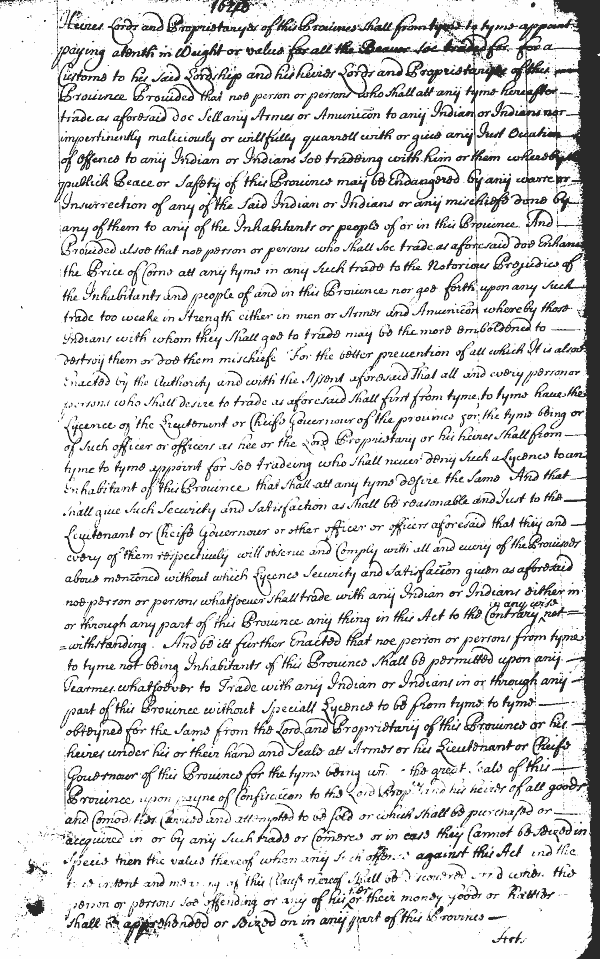 1640
Heires Lords and Proprietaryes of this Province shall from tyme to tyme appoint
paying a tenth in Weight or value for all the Beaver soe traded for, for a
Custome to his said Lordship and his heires Lords and Proprietaryes of this
Province Provided that noe person or persons who shall att any tyme hereafter
trade as aforesaid doe Sell any Armes or Amunicõn to any Indian or Indians nor
impertinently maliciously or willfully quarrell with or give any Just Occation
of offence to any Indian or Indians soe tradeing with him or them whereby the
publick Peace or Safety of this Province may be Endangered by any warre or
Insurrection of any of the Said Indian or Indians or any mischiefe done by
any of them to any of the Inhabitants or people of or in this Province And
Provided alsoe that noe person or persons who shall soe trade as aforesaid doe Enhance
the Price of Corne att any tyme in any Such trade to the Notorious Prejudice of
the Inhabitants and people of and in this Province nor goe forth upon any Such
trade too weake in Strength either in men or Armes and Amunicõn whereby those
Indians with whom they Shall goe to trade may be the more emboldened to
destroy them or doe them mischiefe For the better prevention of all which It is alsoe
Enacted by the Authority and with the Assent aforesaid That all and every person or
persons who shall desire to trade as aforesaid shall first from tyme to tyme have the
Lycence of the Lieutenant or Chiefe Governour of the province for the tyme being or
of such officer or officers as hee or the Lord Proprietary or his heires shall from
tyme to tyme appoint for soe tradeing who shall never deny such a Lycence to an
Inhabitant of this Province that shall att any tyme desire the same And that
shall give such Security and Satisfaction as shall be reasonable and Just to the
Lieutenant or Chiefe Governour or other officer or officers aforesaid that they and
every of them respectively will observe and Comply with all and every of the Provisoes
above mencõned without which Lycence Security and Satisfaccõn given as aforesaid
noe person or persons whatsoever shall trade with any Indian or Indians either in
or through any part of this Province any thing in this Act to the Contrary in any wise not=
=withstanding. And be itt further Enacted that noe person or persons from tyme
to tyme not being Inhabitants of this Province shall be permitted upon any
Tearmes whatsoever to Trade with any Indian or Indians in or through any
part of this Province without Speciall Lycence to be from tyme to tyme
obteyned for the Same from the Lord and Proprietary of this Province or his
heires under his or their hand and Seale att Armes or his Lieutenant or Chiefe
Governour of this Province for the tyme being the great Seale of this
Province upon payne of Confiscacõn to the Lord and his heires of all goods
and Comodities Carried and attempted to be sold or which shall be purchased or
acquired in or by any such trade or Comerce or in case they Cannot be Seized in
Specie then the value thereof when any such against this Act and the
intent and meaning of this Clause hereof shall be discovered and when the
person or persons soe offending or any of his or their money goods or
shall be apprehended or Seized on in any part of this Province
Act